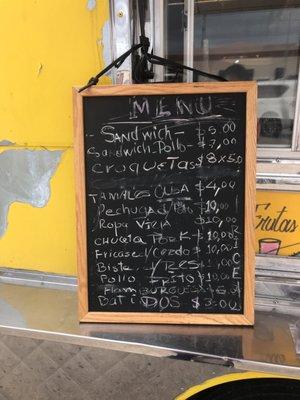 MENU
SANDWICH- $5.00
Sandwich.Pollo- $7,00
CRUQUETAS $8x5.0
TAMALES CUBA $4,00
Pechuga $10,00
Ropa VIEJA $10,00
CHULETA PORK $10,00
Fricase /Cerdo $10.0
Biste
Pollo FRITO
HAMBURGUES
Bati DOS $3.50
Frutas